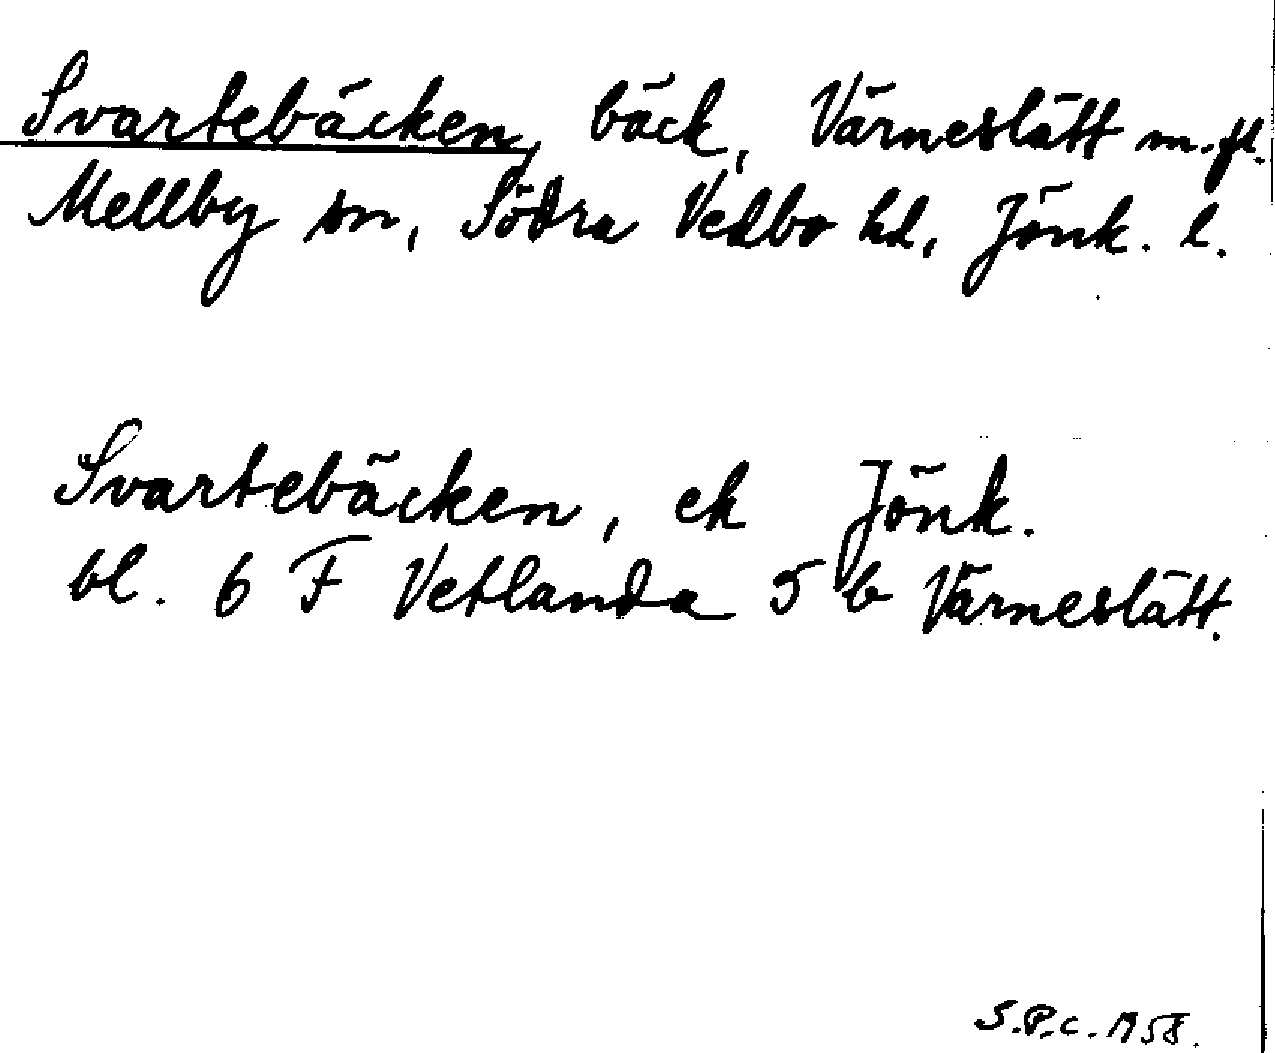 Svartebäcken, bäck, Värneslätt m.fl.
Mellby sn, Södra Vedbo hd, Jönk. l.
Svartebäcken, ek Jönk.
bl. 6 F Vetlanda 5 b Värneslätt.
S.P.C. 1958.